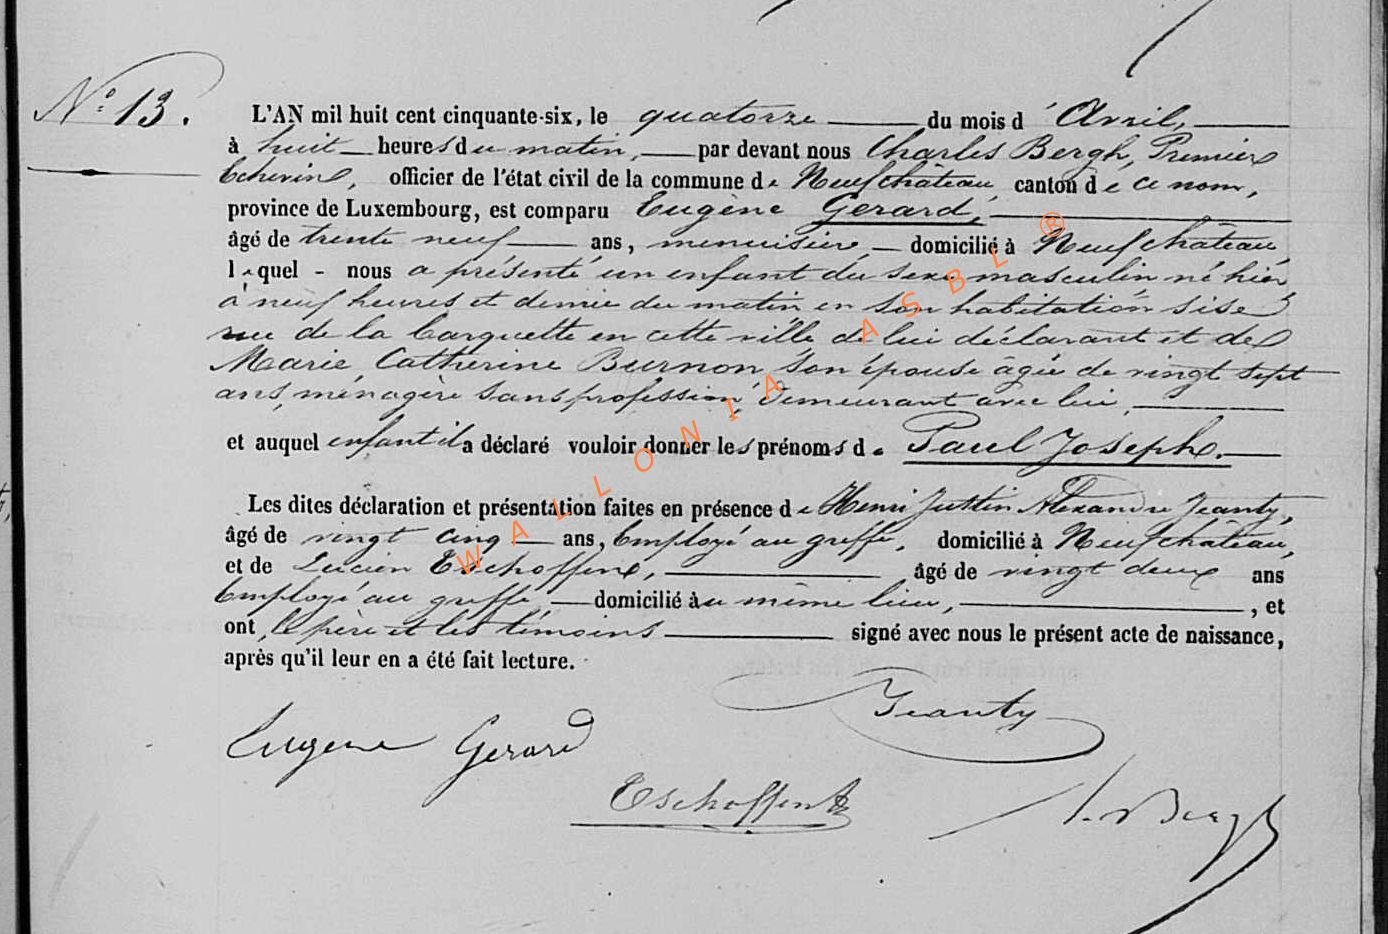 N.° 13.
L'AN mil huit cent cinquante-six, le quatorze du mois d' Avril,
à huit heures du matin, par devant nous Charles Bergh, Premier
Echevin, officier de l'état civil de la commune de Neufchâteau canton de ce nom,
province de Luxembourg, est comparu Eugène Gerard,
âgé de trente neuf ans, menuisier, domicilié à Neufchâteau
lequel - nous a présenté un enfant du sexe masculin, né hier
à neuf heures et demie du matin en son habitation sise
rue de la en cette ville, de lui déclarant et de
Marie Catherine Burnon, son épouse âgée de vingt sept
ans, ménagère sans profession, demeurant avec lui,
et auquel enfant il a déclaré vouloir donner les prénoms de Paul Joseph.
Les dites déclaration et présentation faites en présence de Henri Justin Alexandre Jeanty,
âgé de vingt cinq ans, Employé au greffe, domicilié à Neufchâteau,
et de Lucien Eschoffen, âgé de vingt deux ans
Employé au greffe, domicilié au même lieu, , et
ont, le père et les témoins signé avec nous le présent acte de naissance,
après qu'il leur en a été fait lecture.
Jeanty
Eugene Gerard
Eschoffen
Bergh
WALLONIA ASBL ®